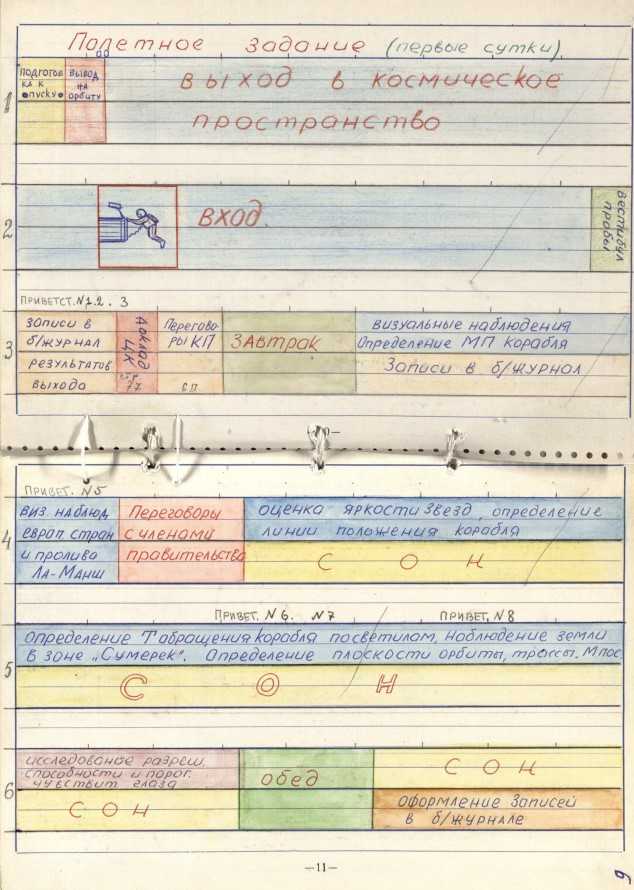 Полетное задание (первые сутки)
1
Подготов
ка к
пуску
Вывод
на
орбиту
выход в космическое
пространство
2
ВХОД.
вестибул
пробы
ПРИВЕТСТ. №1.2.3
3
записи в
б/журнал
результатов
выхода
доклад
ЦК
стр
77
Перегово-
ры КП
завтрак
визуальные наблюдения
Определение МП корабля
Записи в б/журнал
ПРИВЕТ. №5
4
виз. наблюд
европ. стран
и пролива
Ла-Манш
Переговоры
с членами
правительства
оценка яркости звезд, определение
линии положения корабля
СОН
ПРИВЕТ. №6. №7 ПРИВЕТ. №8
5
Определение Т обращения корабля по светилам, Наблюдение земли
в зоне „Сумерек". Определение плоскости орбиты, трассы. М пос
СОН
6
исследование разреш.
способности и порог.
чувствит глаза
СОН
обед
СОН
оформление Записей
в б/журнале
—11—
6